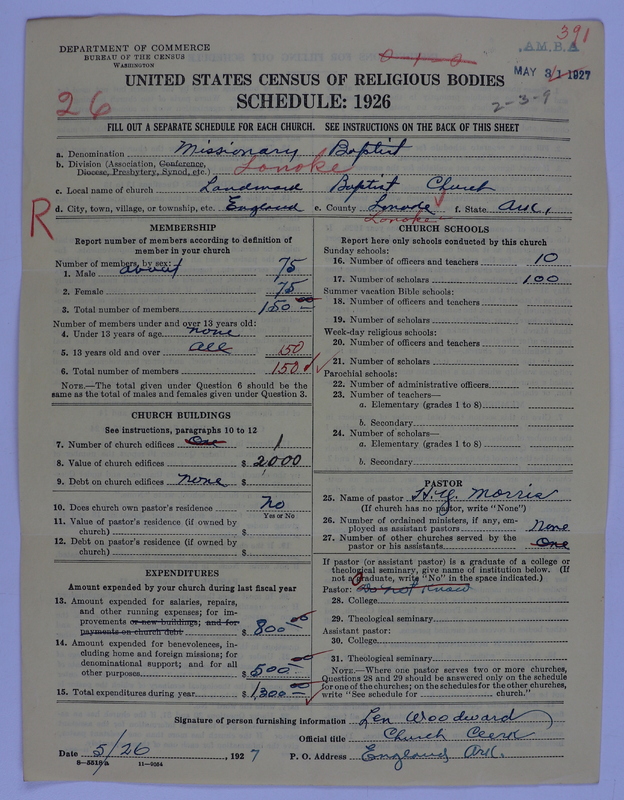 391
DEPARTMENT OF COMMERCE
BUREAU OF THE CENSUS
WASHINGTON
A.M.B.A
MAY 31 1927
2-3-9
26
UNITED STATES CENSUS OF RELIGIOUS BODIES
SCHEDULE: 1926
FILL OUT A SEPARATE SCHEDULE FOR EACH CHURCH. SEE INSTRUCTIONS ON THE BACK OF THIS SHEET
a. Denomination Missionary Baptist
b. Division (Association, Conference, Diocese, Presbytery, Synod, etc.) Lonoke
c. Local name of church Landmark Baptist Church
d. City, town, village, or township, etc. England e. County Lonoke f. State Ark.
Lonoke
R
MEMBERSHIP
Report number of members according to definition of
member in your church
Number of members, by sex:
1. Male about 75
2. Female 75
3. Total number of members 150
Number of members under and over 13 years old:
4. Under 13 years of age none
5. 13 years old and over all 150
6. Total number of members 150
NOTE.—The total given under Question 6 should be the
same as the total of males and females given under Question 3.
CHURCH BUILDINGS
See instructions, paragraphs 10 to 12
7. Number of church edifices One 1
8. Value of church edifices $ 2,000
9. Debt on church edifices none $
10. Does church own pastor's residence? No
Yes or No
11. Value of pastor's residence (if owned by
church) $
12. Debt on pastor's residence (if owned by
church) $
EXPENDITURES
Amount expended by your church during last fiscal year
13. Amount expended for salaries, repairs,
and other running expenses; for im-
provements or new buildings; and for
payments on church debt $ 800.00
14. Amount expended for benevolences, in-
cluding home and foreign missions; for
denominational support; and for all
other purposes $ 500.00
15. Total expenditures during year $ 1,300.00
CHURCH SCHOOLS
Report here only schools conducted by this church
Sunday schools:
16. Number of officers and teachers 10
17. Number of scholars 100
Summer vacation Bible schools:
18. Number of officers and teachers
19. Number of scholars
Week-day religious schools:
20. Number of officers and teachers
21. Number of scholars
Parochial schools:
22. Number of administrative officers
23. Number of teachers—
a. Elementary (grades 1 to 8)
b. Secondary
24. Number of scholars—
a. Elementary (grades 1 to 8)
b. Secondary
PASTOR
25. Name of pastor Morris
(If church has no pastor, write "None")
26. Number of ordained ministers, if any, em-
ployed as assistant pastors None
27. Number of other churches served by the
pastor or his assistants One
If pastor (or assistant pastor) is a graduate of a college or
theological seminary, give name of institution below. (If
not a graduate, write "No" in the space indicated.)
Pastor: Do not Know
28. College
29. Theological seminary
Assistant pastor:
30. College
31. Theological seminary
NOTE.—Where one pastor serves two or more churches,
Questions 28 and 29 should be answered only on the schedule
for one of the churches; on the schedules for the other churches,
write "See schedule for church."
Signature of person furnishing information Len Woodward
Official title Church Clerk
Date 5/26, 1927 P. O. Address England Ark.
8-5518a 11-9054